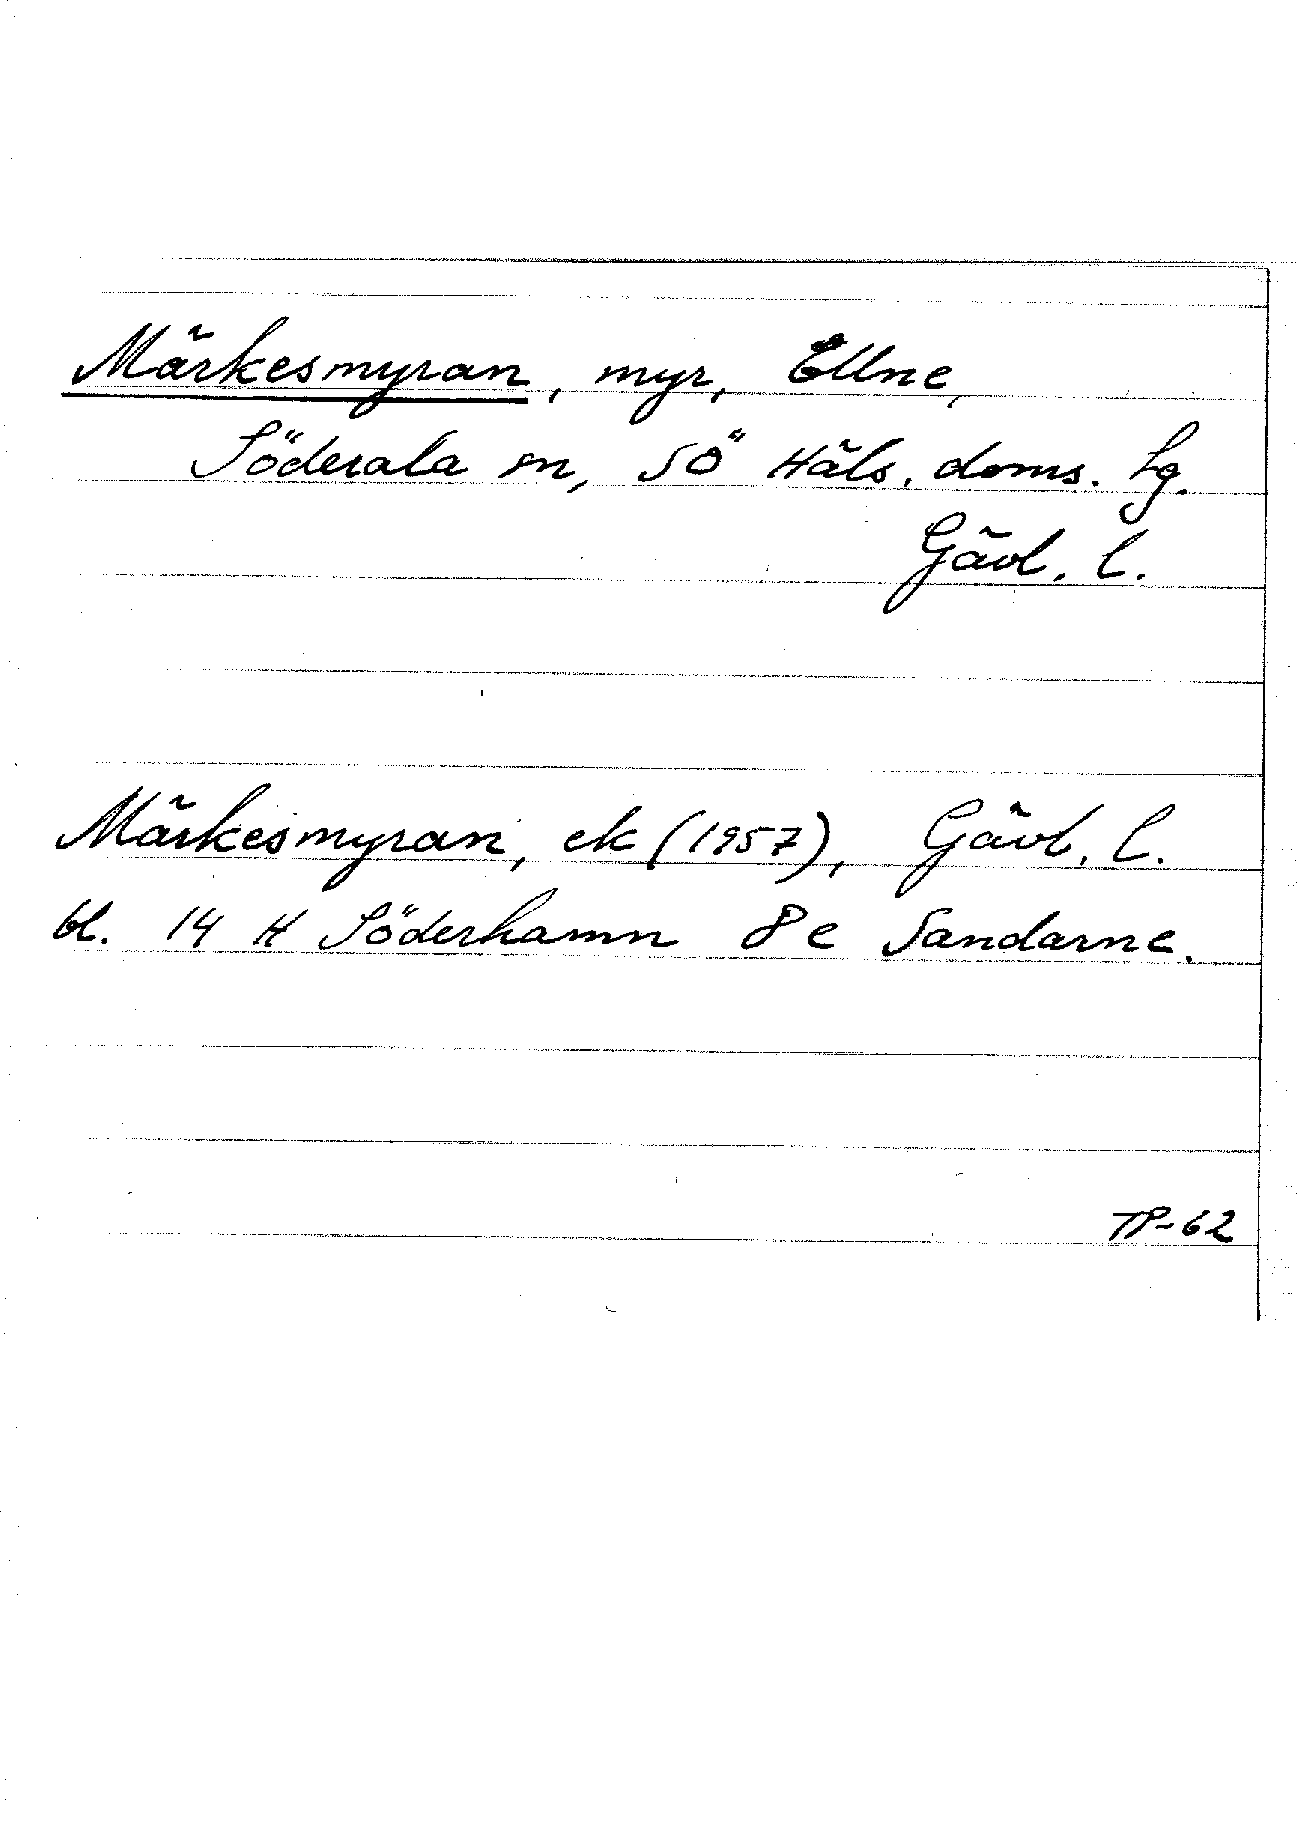 Märkesmyran, myr, Ellne,
Söderala sn, SÖ Häls. doms. tg.
Gävl. l.
Märkesmyran, ek (1957), Gävl. l.
bl. 14 H Söderhamn 8e Sandarne.
TP-62